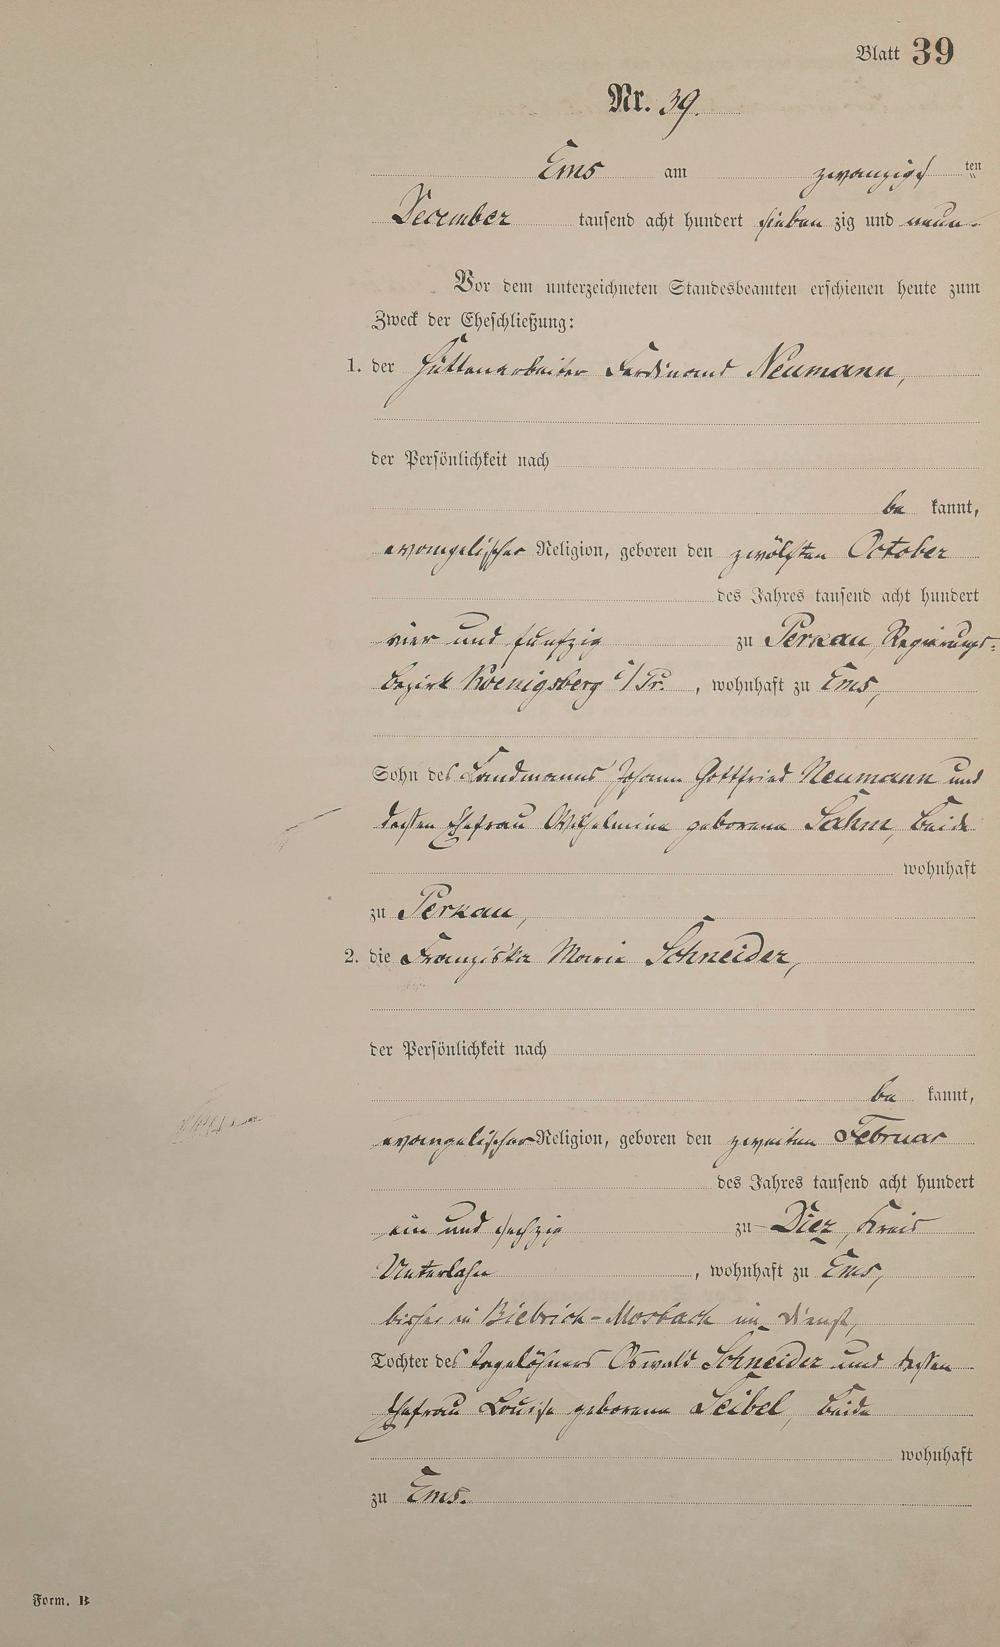 Blatt 39
Nr. 39.
Ems am zwanzigsten
December tausend acht hundert sieben zig und neun.
Vor dem unterzeichneten Standesbeamten erschienen heute zum
Zweck der Eheschließung:
1. der Hüttenarbeiter Ferdinand Neumann,
der Persönlichkeit nach
be kannt,
evangelischer Religion, geboren den zwölften October
des Jahres tausend acht hundert
vier und fünfzig zu Perkau, Regierungs-
bezirk Koenigsberg i/Pr. , wohnhaft zu Ems,
Sohn des Landmanns Johann Gottfried Neumann und
dessen Ehefrau Wilhelmine geborene Sahm, beide
wohnhaft
zu Perkau,
2. die Franziska Marie Schneider,
der Persönlichkeit nach
be kannt,
evangelischer Religion, geboren den zweiten Februar
des Jahres tausend acht hundert
ein und sechzig zu Diez, Kreis
Unterlahn , wohnhaft zu Ems,
bisher in Biebrich-Mosbach im Dienst,
Tochter des Tagelöhners Oswald Schneider und dessen
Ehefrau Louise geborene Seibel, beide
wohnhaft
zu Ems.
Form. B